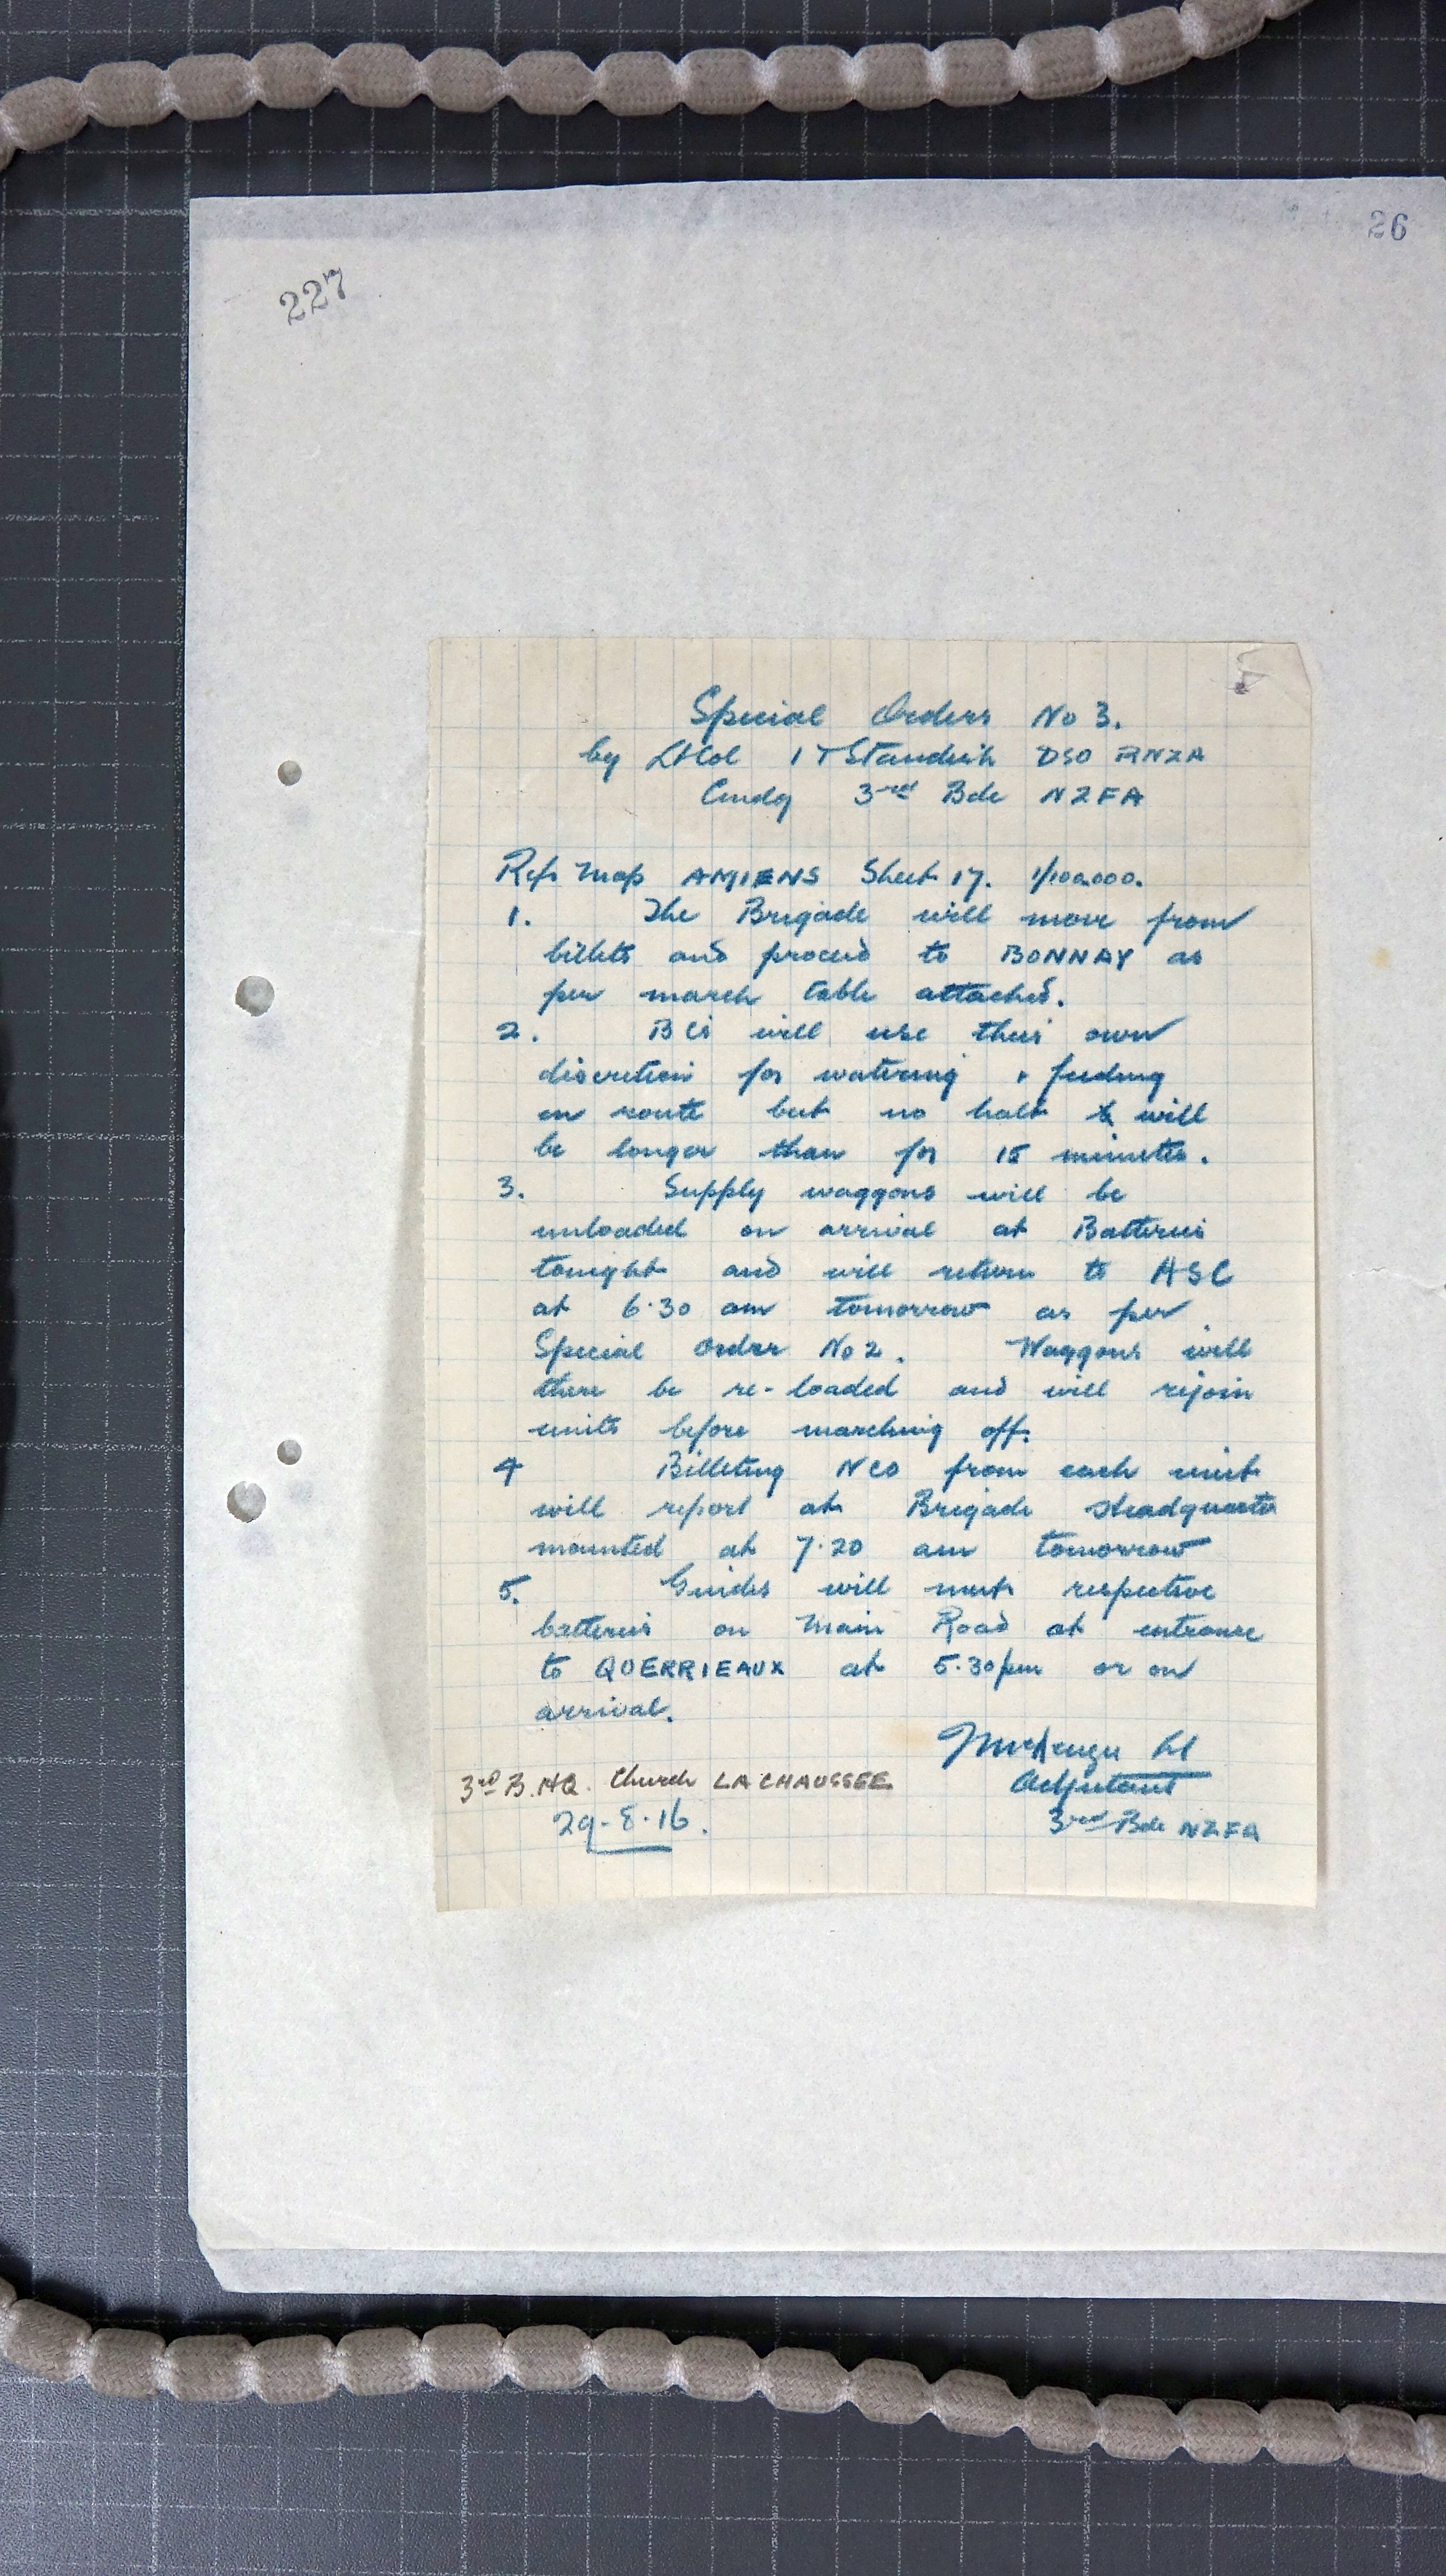 26
227
Special Orders No 3.
by Lt Col I T Standish DSO RNZA
Cmdg 3rd Bde NZFA
Ref Map AMIENS Sheet 17. 1/100.000.
1. The Brigade will move from
billets and proceed to BONNAY as
per march table attached.
2. BCs will use their own
discretion for watering & feeding
en route but no halt will
be longer than for 15 minutes.
3. Supply waggons will be
unloaded on arrival at Batteries
tonight and will return to ASC
at 6.30 am tomorrow as per
Special Order No 2. Waggons will
there be re-loaded and will rejoin
units before marching off.
4 Billeting NCO from each unit
will report at Brigade Headquarters
mounted at 7.20 am tomorrow
5. Guides will meet respective
batteries on Main Road at entrance
to QUERRIEAUX at 5.30 pm or on
arrival.
Lt
Adjutant
3rd B.HQ. Church LA CHAUSSEE
29-8-16.
3rd Bde NZFA